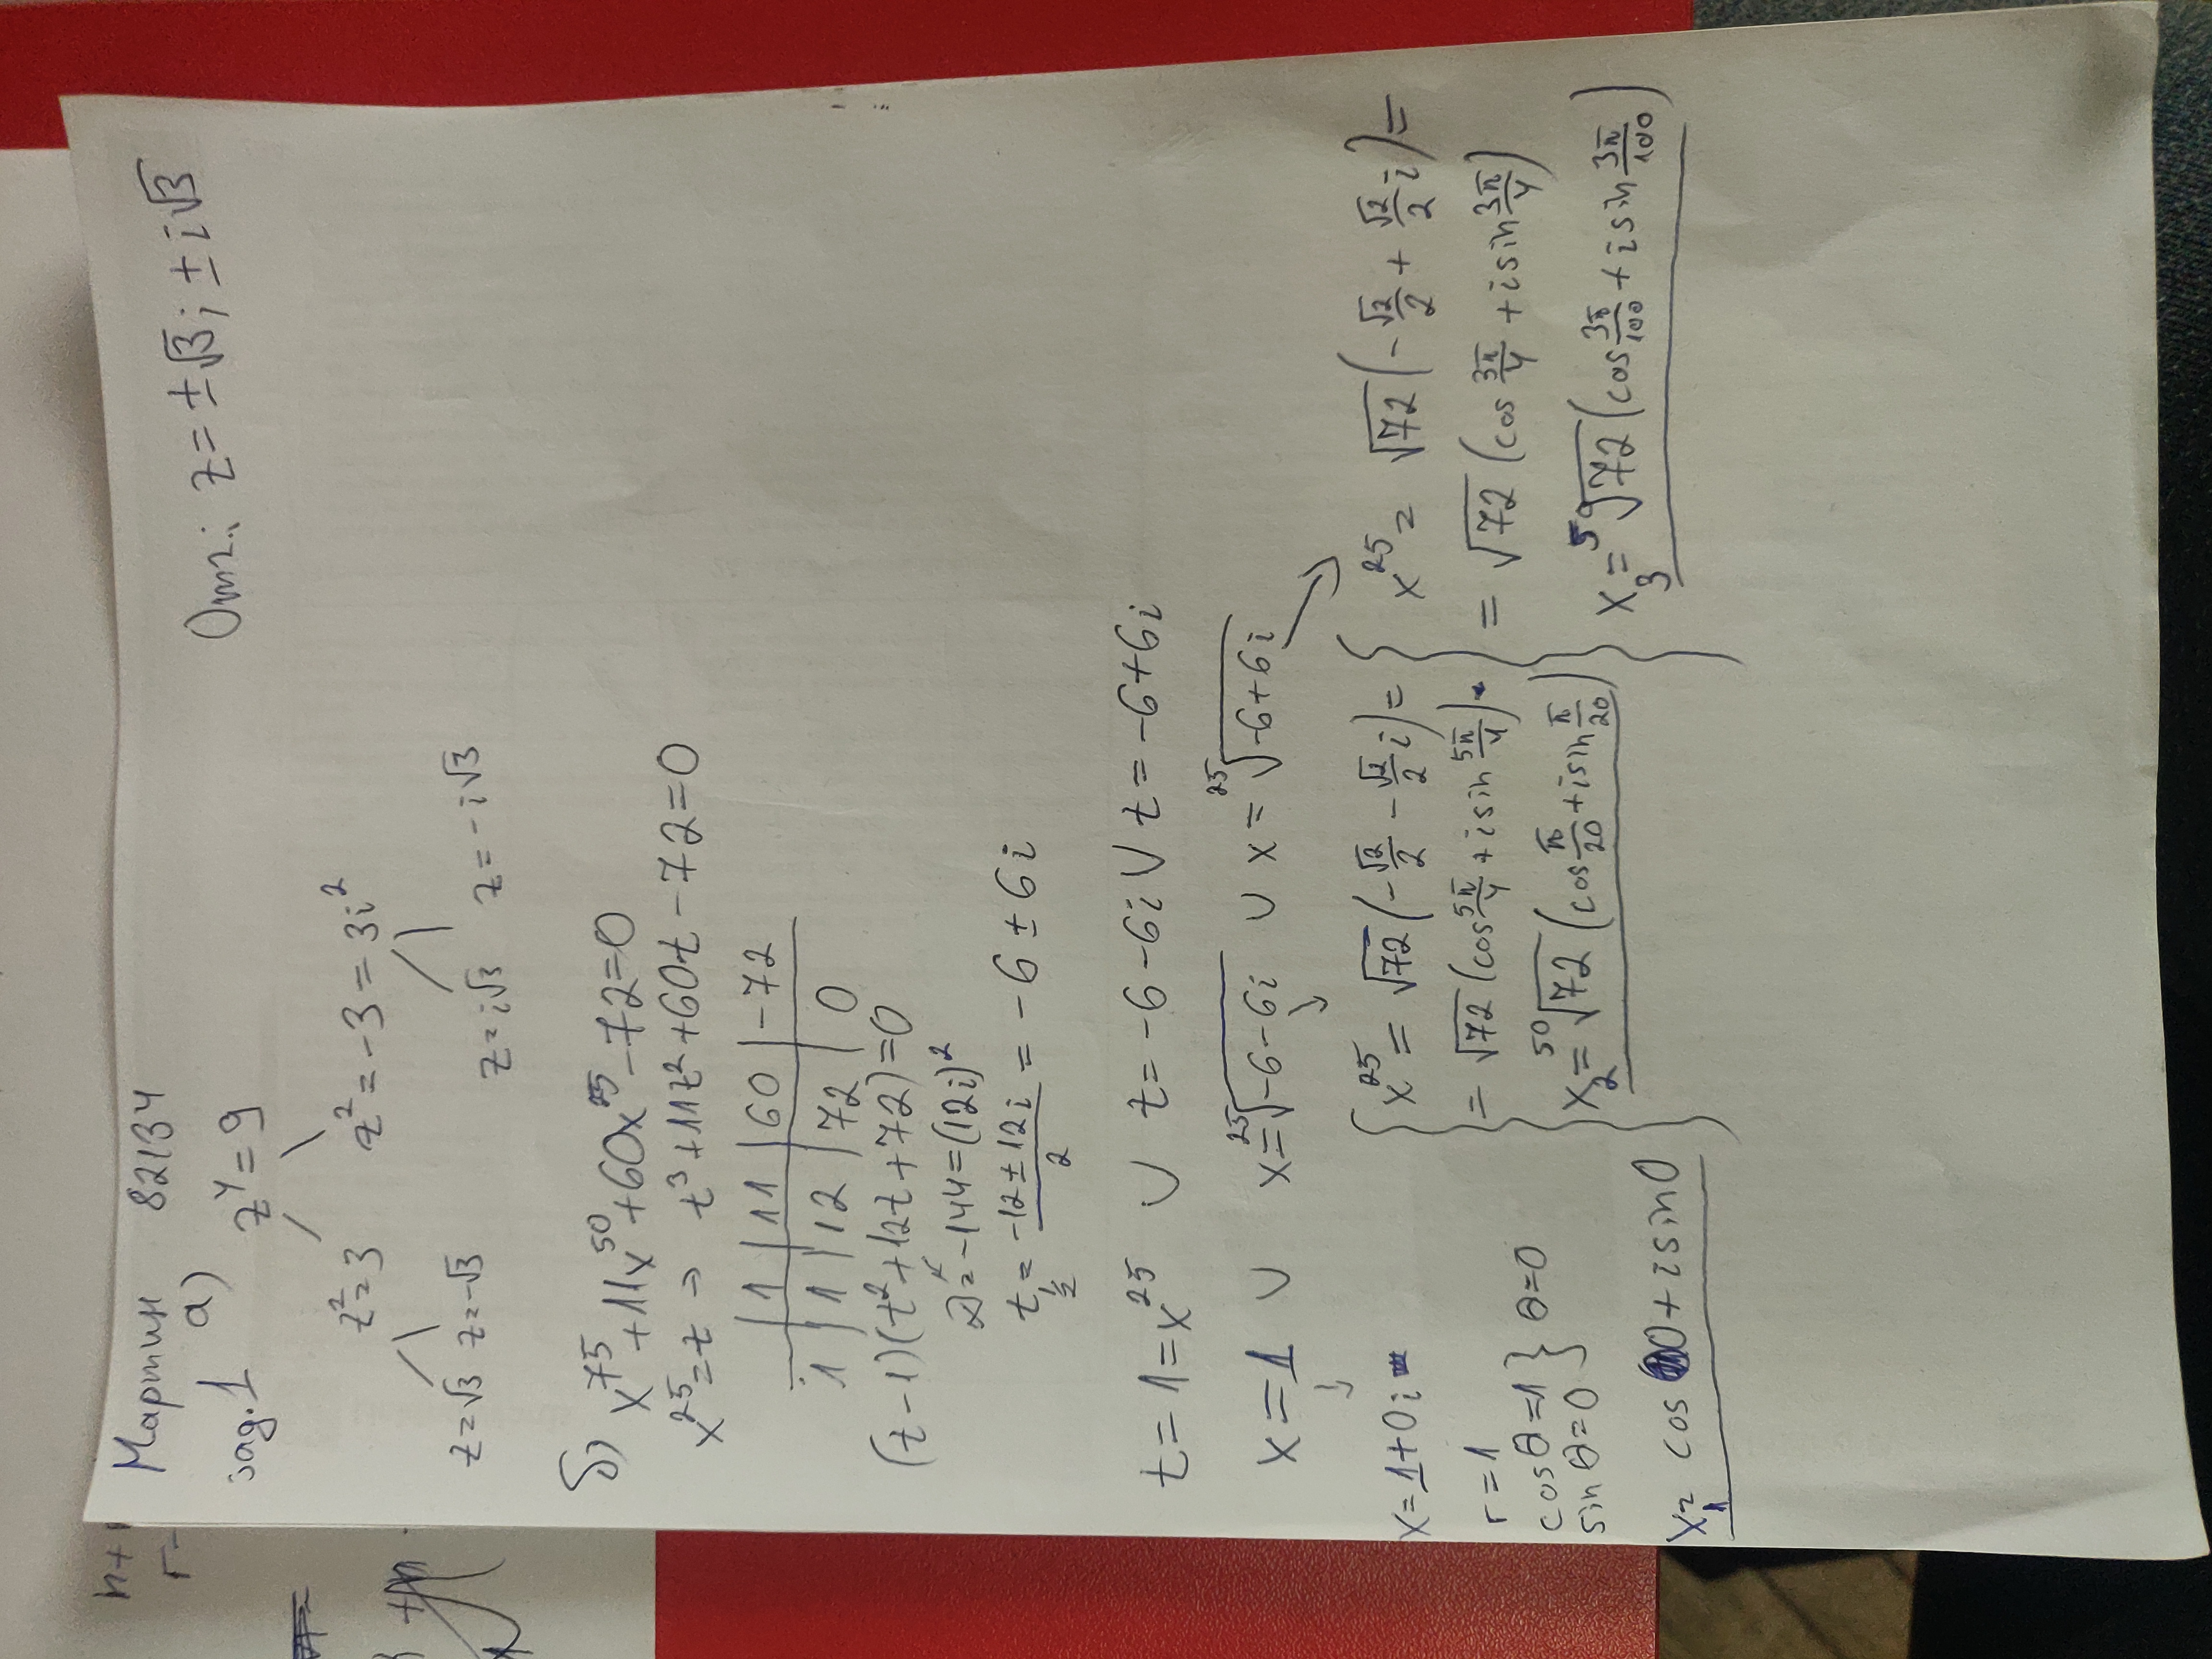 Мартин 82134
зад.1 а) z⁴ = 9
Отг.: z = ±√3; ± i√3
z² = 3 z² = -3 = 3i²
z = √3 z = -√3 z = i√3 z = -i√3
б) x⁷⁵ + 11x⁵⁰ + 60x²⁵ - 72 = 0
x²⁵ = t → t³ + 11t² + 60t - 72 = 0
1 | 11 | 60 | -72
1 | 1 | 12 | 72 | 0
(t - 1)(t² + 12t + 72) = 0
D = -144 = (12i)²
t₁/₂ = (-12 ± 12i)/2 = -6 ± 6i
t = 1 = x²⁵ ∪ t = -6 - 6i ∪ t = -6 + 6i
x = 1 ∪ x = ²⁵√(-6 - 6i) ∪ x = ²⁵√(-6 + 6i)
x = 1 + 0i
r = 1
cos θ = 1 } θ = 0
sin θ = 0
x₁ = cos 0 + i sin 0
x²⁵ = √72 (-√2/2 - √2/2 i) =
= √72 (cos 5π/4 + i sin 5π/4)
x₂ = ⁵⁰√72 (cos π/20 + i sin π/20)
x²⁵ = √72 (-√2/2 + √2/2 i) =
= √72 (cos 3π/4 + i sin 3π/4)
x₃ = ⁵⁰√72 (cos 3π/100 + i sin 3π/100)